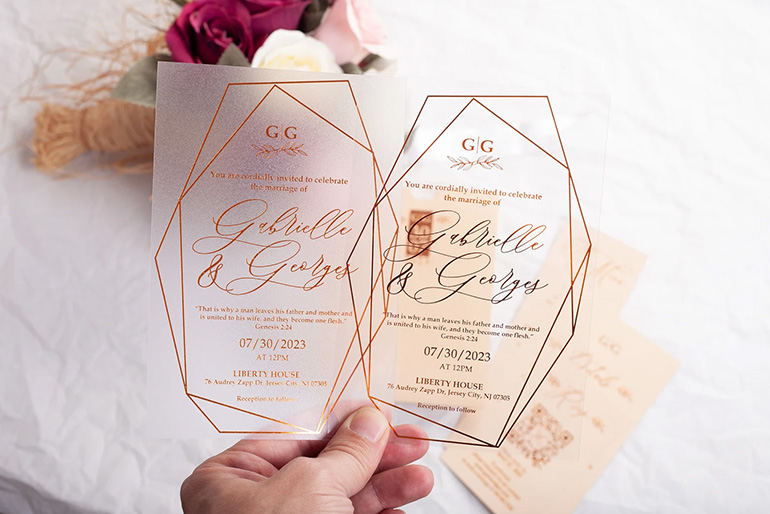 G|G
You are cordially invited to celebrate
the marriage of
Gabrielle
& Georges
"That is why a man leaves his father and mother and
is united to his wife, and they become one flesh."
Genesis 2:24
07/30/2023
AT 12PM
LIBERTY HOUSE
76 Audrey Zapp Dr. Jersey City, NJ 07305
Reception to follow
G|G
You are cordially invited to celebrate
the marriage of
Gabrielle
& Georges
"That is why a man leaves his father and mother and
is united to his wife, and they become one flesh."
Genesis 2:24
07/30/2023
AT 12PM
LIBERTY HOUSE
76 Audrey Zapp Dr. Jersey City, NJ 07305
Reception to follow
G|G